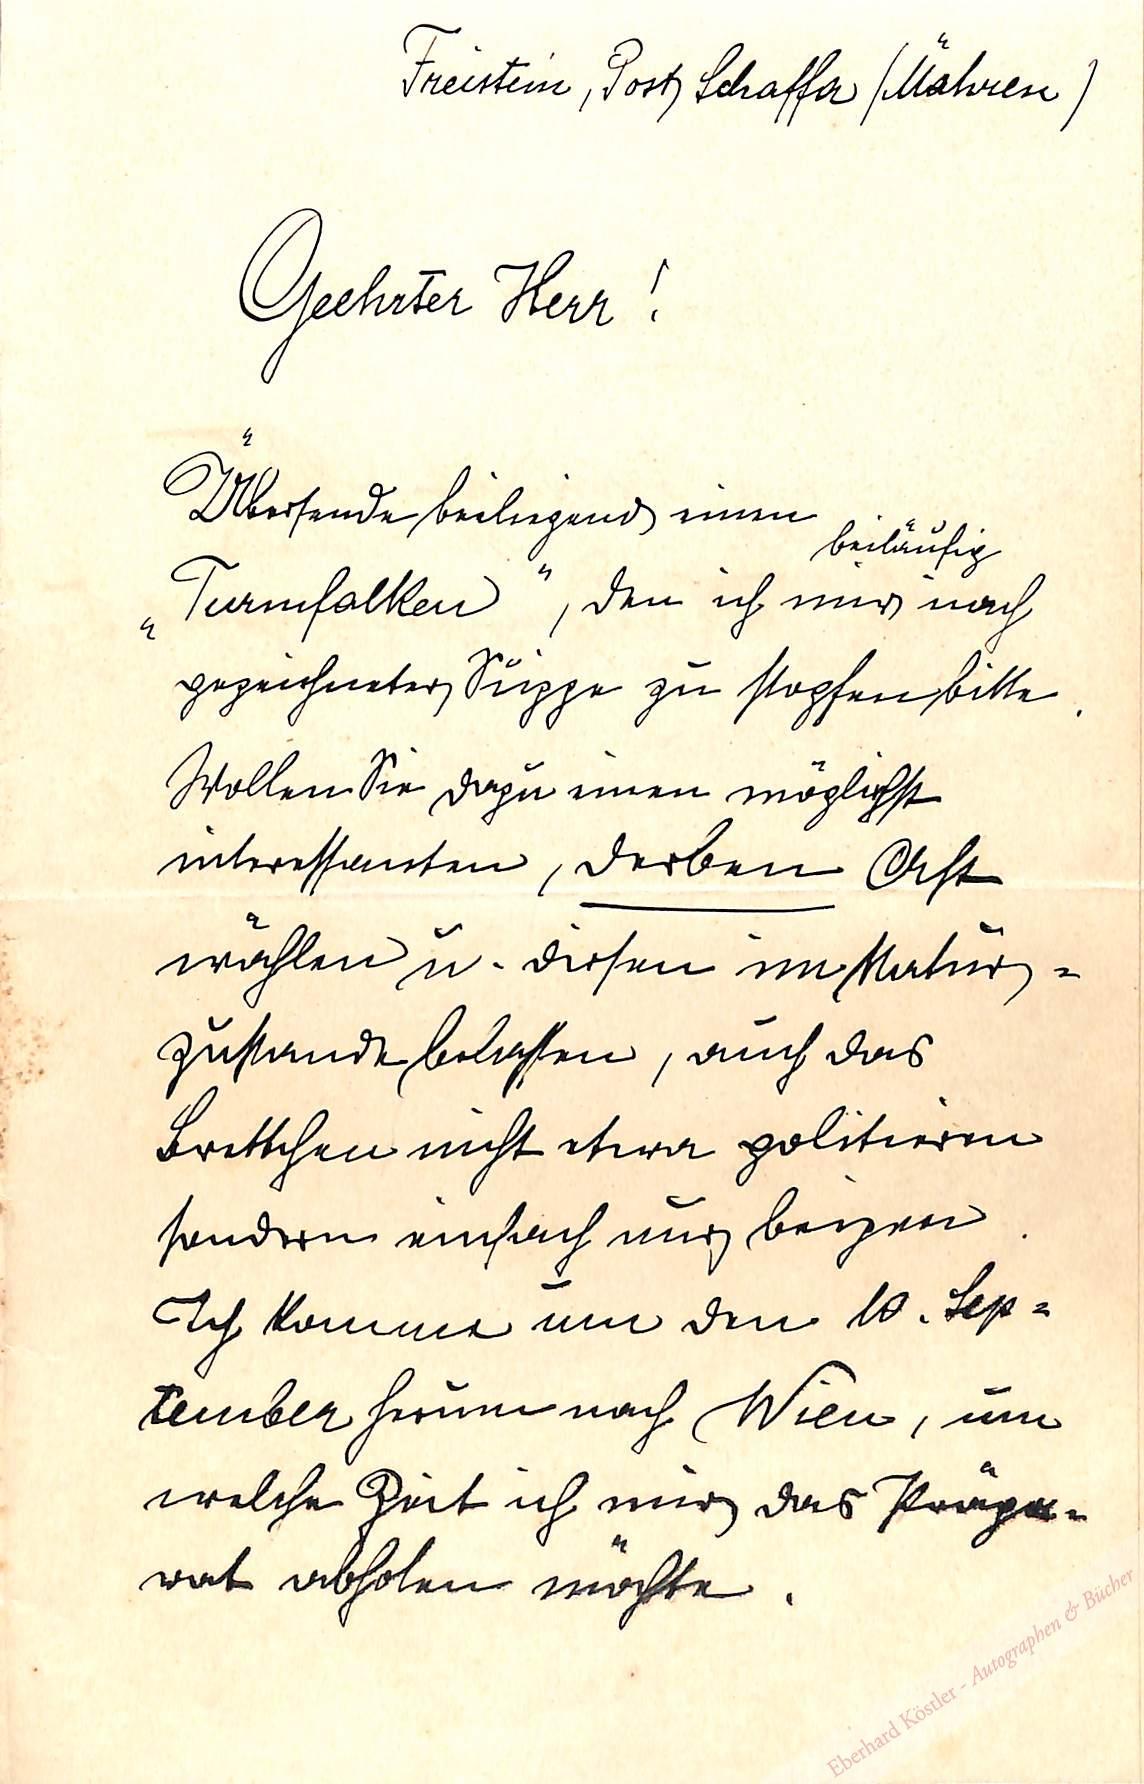 Freistein, Post Schaffa (Mähren)
Geehrter Herr!
Übersende beiliegend einen
beiläufig
„Turmfalken", den ich mir nach
gezeichneter Skizze zu stopfen bitte.
Wollen Sie dazu einen möglichst
interessanten, derben Ast
wählen u. diesen im Natur-
zustande belassen, auch das
Brettchen nicht etwa politieren
sondern einfach nur beizen.
Ich komme um den 10. Sep=
tember herum nach Wien, um
welche Zeit ich mir das Präpa=
rat abholen möchte.
Eberhard Köstler - Autographen & Bücher